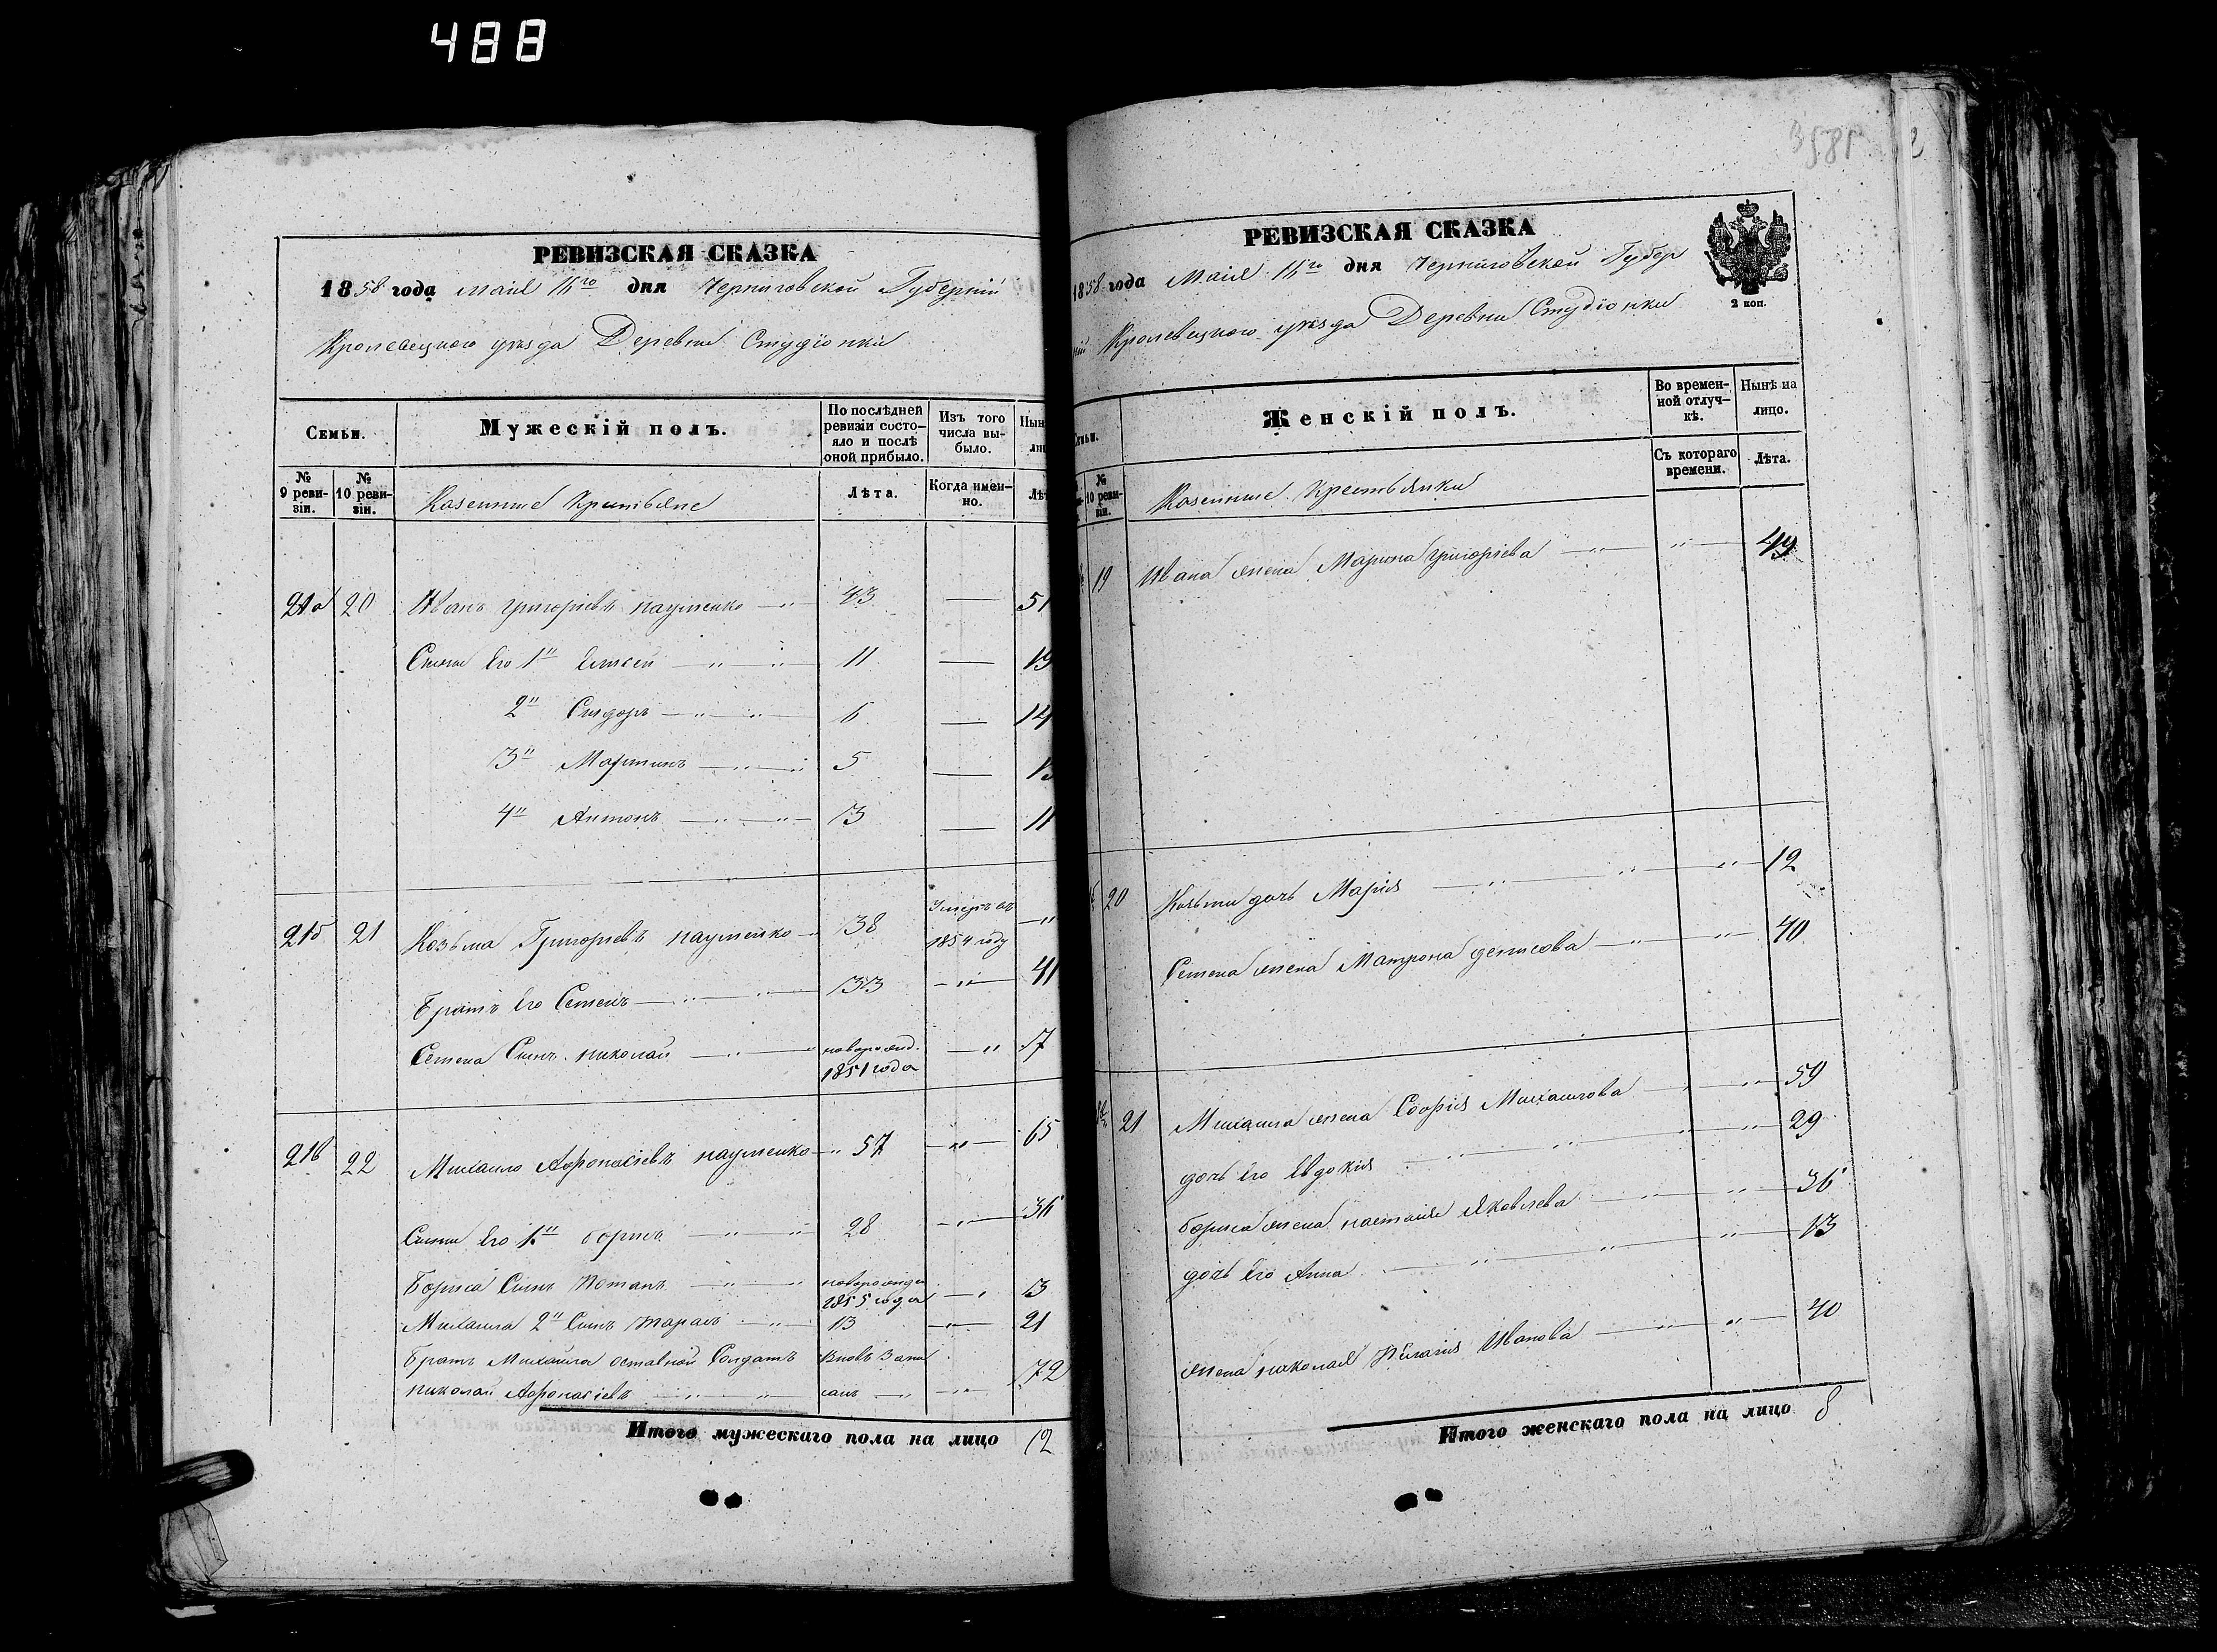 488
РЕВИЗСКАЯ СКАЗКА
1858 года маия дня Черниговской Губерніи
Кролевецкого уезда Деревни Студіонки
Семьи.
Мужескій полъ.
По послѣдней ревизіи состо-яло и послѣ оной прибыло.
Изъ того числа вы-было.
Нын
ли
№ 9 реви-зіи.
№ 10 реви-зіи.
Казенные Крестьяне
Лѣта.
Когда имен-но.
Лѣт
20 Иванъ григоріевъ науменко 43 — 51
Сыны Его 1й 11 — 19
2й Сидоръ 6 — 14
3й Мартинъ 5 — 13
4й Антонъ 3 — 11
215 21 Козьма Григоріевъ науменко 38 Умеръ въ 1854 году "
Братъ Его Семенъ 33 41
Семена Сынъ николай новорожд. 1851 года 7
216 22 Михайло Афонасіевъ науменко 57 65
Сыны Его 1й борисъ 28 36
Бориса Сынъ Потапъ новорожден 1855 года 3
Михайла 2й Сынъ Тарасъ 13 21
Братъ Михайла оставной Солдатъ Вновь Запи
николай Афонасіевъ санъ 72
Итого мужескаго пола на лицо 12
358
2
РЕВИЗСКАЯ СКАЗКА
1858 года Маия дня Черниговской Губер
ніи Кролевецкого уезда Деревни Студіонки
2 коп.
Женскій полъ.
Во времен-ной отлуч-кѣ.
Нынѣ на лицо.
№ 10 реви-зіи.
Казенные Крестьянки
Съ котораго времени.
Лѣта.
19 Ивана жена Марина григоріева 49
20 Козьмы дочь Марія 12
Семена жена Матрона денисова 40
21 Михаила жена Софія Михаилова 59
дочь Его Евдокія 29
бориса жена настасія Яковлева 36
дочь Его Анна 13
жена николая Пелагія Иванова 40
Итого женскаго пола на лицо 8